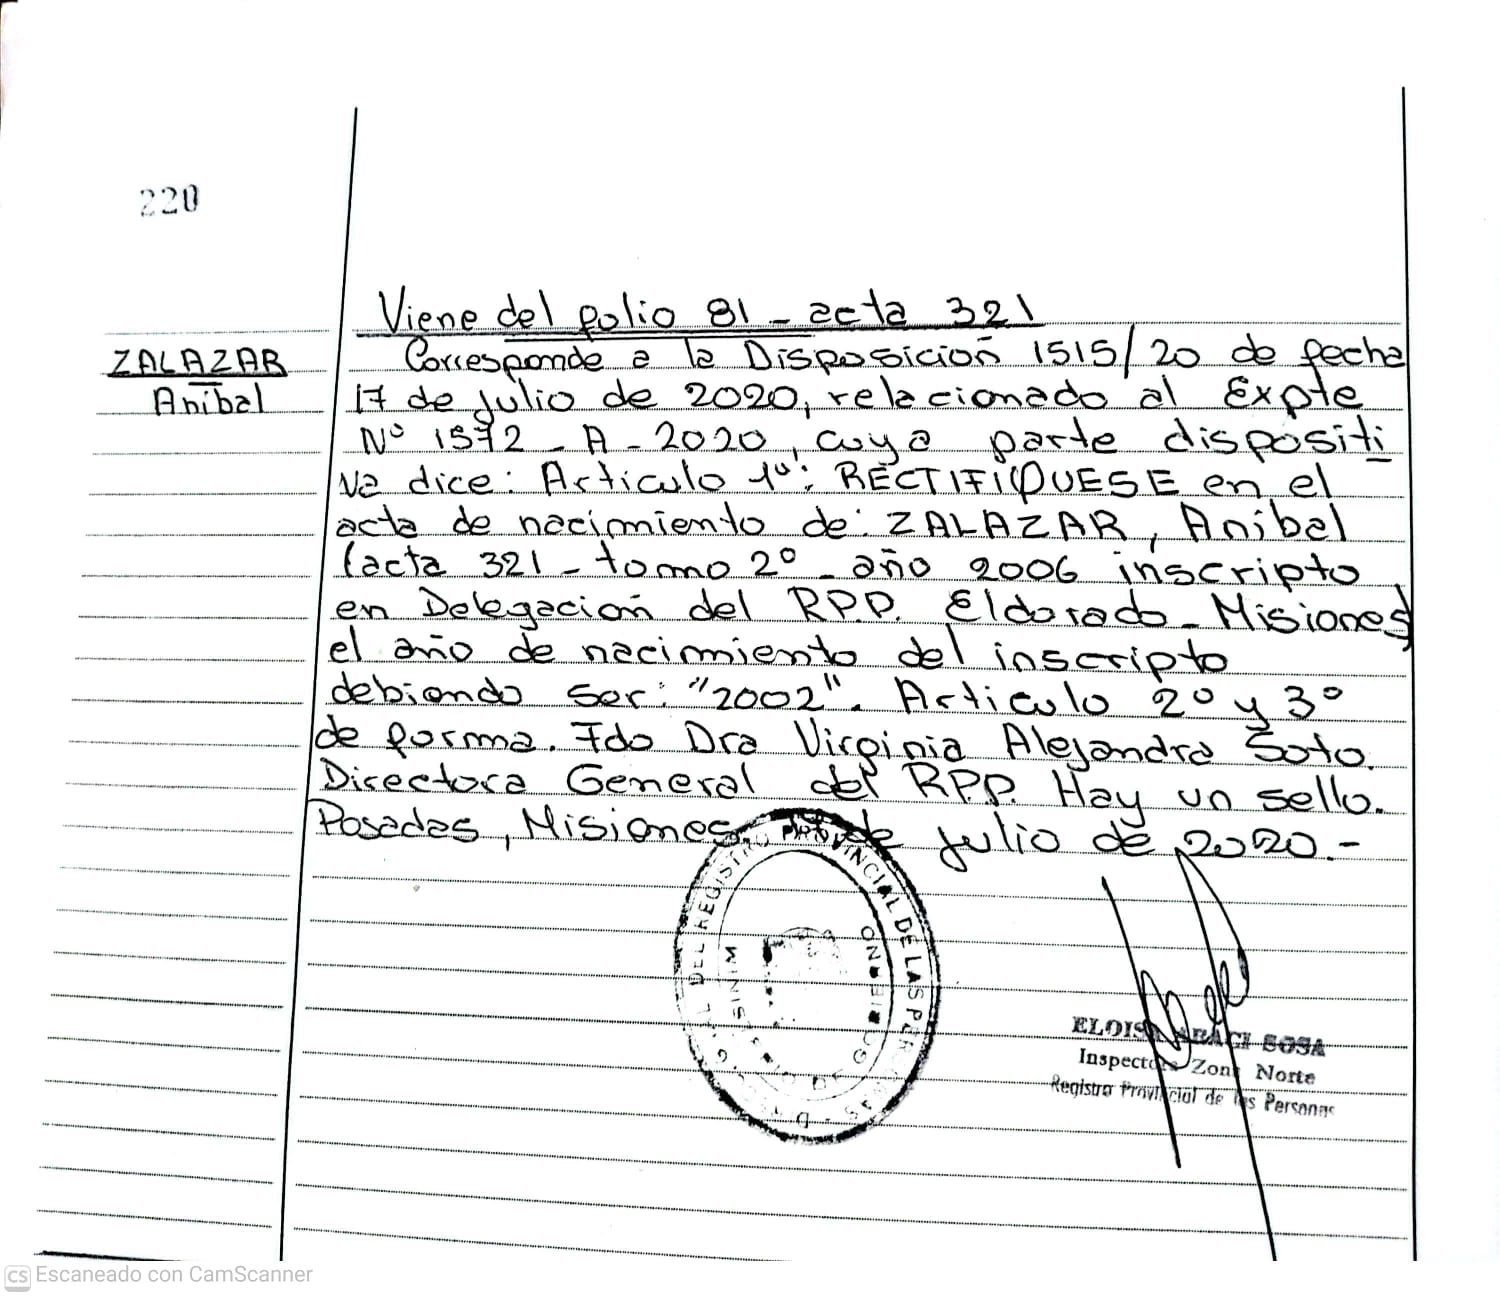 220
Viene del folio 81 - acta 321
ZALAZAR
Anibal
Corresponde a la Disposición 1515/20 de fecha
17 de julio de 2020, relacionado al Expte
Nº 1572 - A - 2020, cuya parte dispositi
va dice: Articulo 1º: RECTIFIQUESE en el
acta de nacimiento de: ZALAZAR, Anibal
(acta 321 - tomo 2º - año 2006 inscripto
en Delegación del RPP. Eldorado - Misiones)
el año de nacimiento del inscripto
debiendo ser: "2002". Articulo 2º y 3º
de forma. Fdo Dra Virginia Alejandra Soto.
Directora General del RPP. Hay un sello.
Posadas, Misiones, de julio de 2020.-
DEL REGISTRO PROVINCIAL DE LAS PERSONAS
ELOISA SOSA
Inspectora Zona Norte
Registro Provincial de las Personas
CS Escaneado con CamScanner